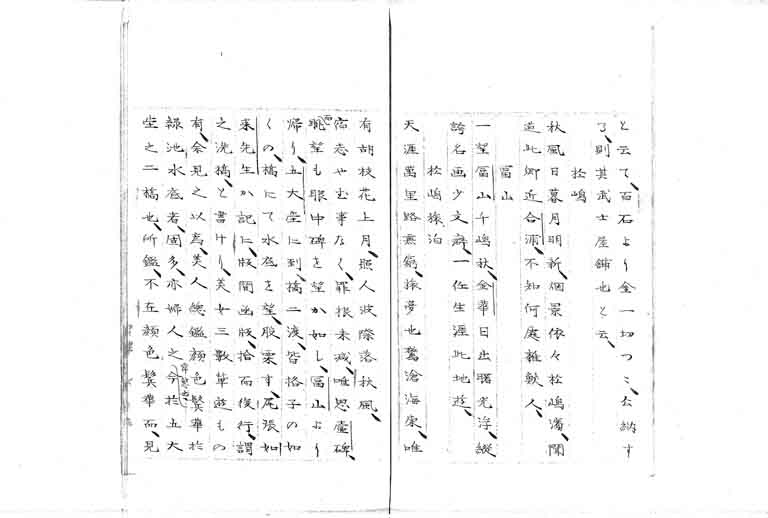 と云て百石より金一切つゝ公納す
了、則其武士屋鋪也と云、
松嶋
秋風日暮月明新、烟景依々松嶋濱、聞
造此郷近合浦、不知何處在鮫人、
冨山
一望冨山千嶋秋、金華日出曙光浮、縦
誇名画少文癖、一任生涯此地遊、
松嶋旅泊
天涯萬里路無窮、旅夢也驚滄海東、唯
有胡枝花上月、照人波際落秋風、
宿志や む事なく、罪根未滅、唯思臺碑、
眺望も眼中碑を望か如し、冨山より
帰り、五大堂に到、橋二渡、皆格子の如
くの、橋にて水底を望、股栗す、尾張如
来先生か記に、版間幽版、拾而後行、謂
之洗橋、と書けり、美女三数輩遊もの
有、余見之以為、美人總鑑顔色鬓華於
緑池、水底者固多、亦婦人之今於五大
堂之二橋也、所鑑、不在顔色鬓華而、見